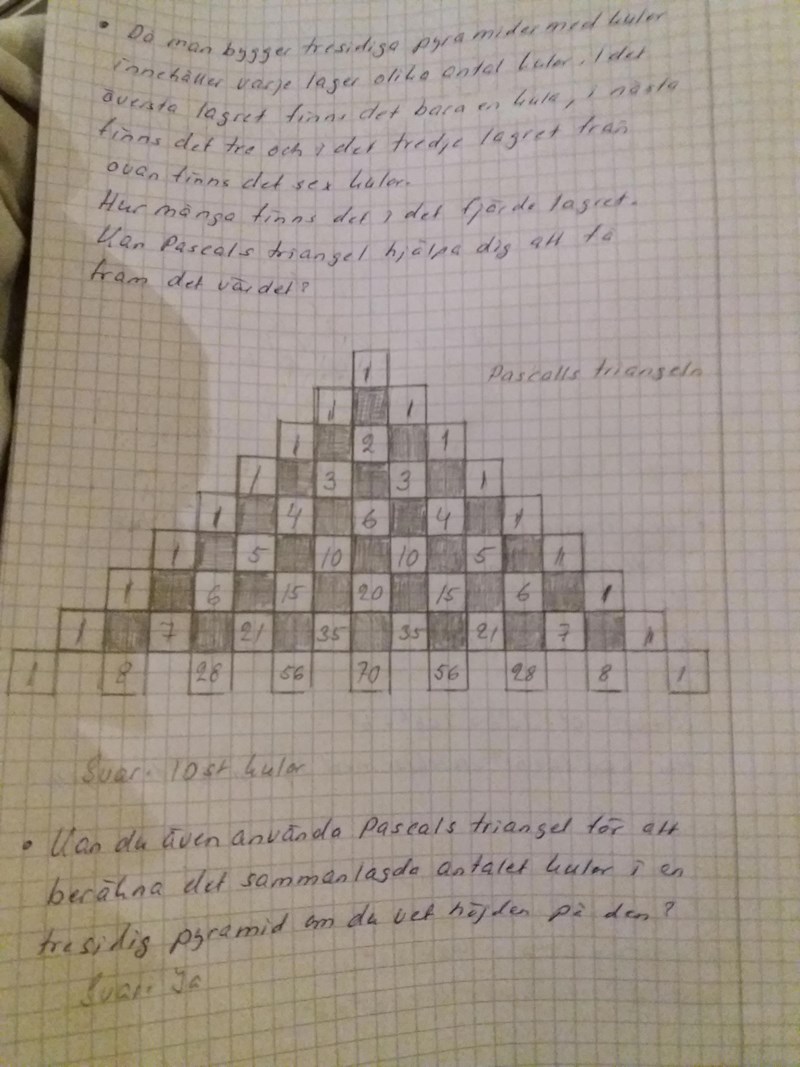 • Då man bygger tresidiga pyramider med kulor
innehåller varje lager olika antal kulor. I det
översta lagret finns det bara en kula, i nästa
finns det tre och i det tredje lagret från
ovan finns det sex kulor.
Hur många finns det i det fjärde lagret.
Kan Pascals triangel hjälpa dig att få
fram det värdet?
1
Pascalls triangeln
1 1
1 2 1
1 3 3 1
1 4 6 4 1
1 5 10 10 5 1
1 6 15 20 15 6 1
1 7 21 35 35 21 7 1
1 8 28 56 70 56 28 8 1
Svar. 10 st kulor
• Kan du även använda Pascals triangel för att
beräkna det sammanlagda antalet kulor i en
tresidig pyramid om du vet höjden på den?
Svar. Ja